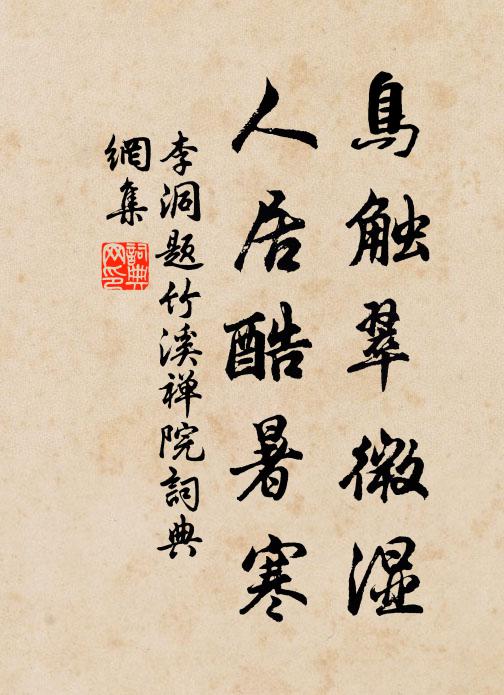 鳥触翠微湿
人居酷暑寒
李洞题竹溪禅院词典
網集
詞典
网印